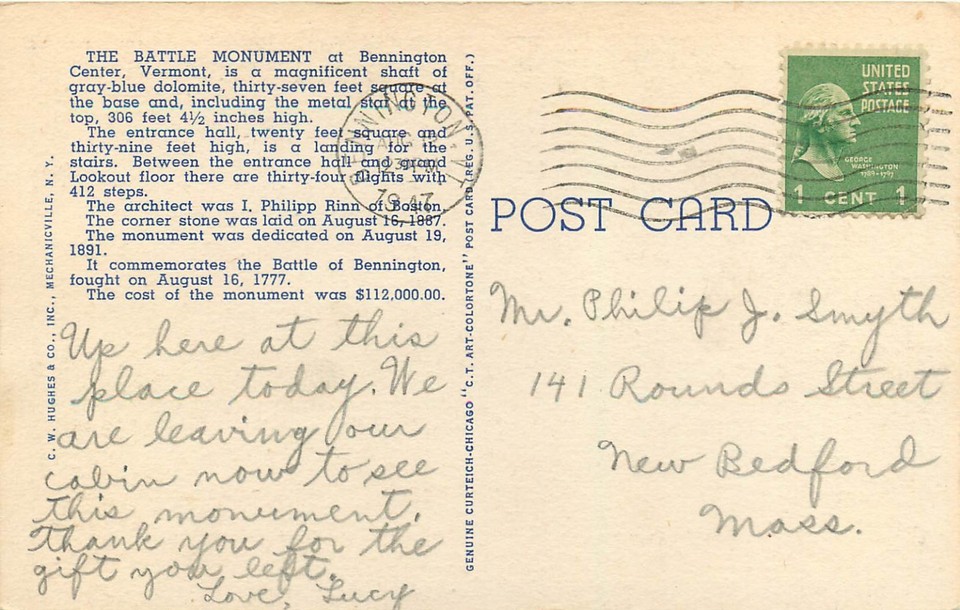 THE BATTLE MONUMENT at Bennington
Center, Vermont, is a magnificent shaft of
gray-blue dolomite, thirty-seven feet square at
the base and, including the metal star at the
top, 306 feet 4½ inches high.
The entrance hall, twenty feet square and
thirty-nine feet high, is a landing for the
stairs. Between the entrance hall and grand
Lookout floor there are thirty-four flights with
412 steps.
The architect was I, Philipp Rinn of Boston.
The corner stone was laid on August 16, 1887.
The monument was dedicated on August 19,
1891.
It commemorates the Battle of Bennington,
fought on August 16, 1777.
The cost of the monument was $112,000.00.
Up here at this
place today. We
are leaving our
cabin now to see
this monument.
Thank you for the
gift you left.
Love, Lucy
C. W. HUGHES & CO., INC., MECHANICVILLE, N. Y.
GENUINE CURTEICH-CHICAGO "C.T. ART-COLORTONE" POST CARD (REG. U.S. PAT. OFF.)
BENNINGTON, VT.
AUG
1947
UNITED
STATES
POSTAGE
GEORGE
WASHINGTON
1789-1797
1 CENT 1
POST CARD
Mr. Philip J. Smyth
141 Rounds Street
New Bedford
Mass.